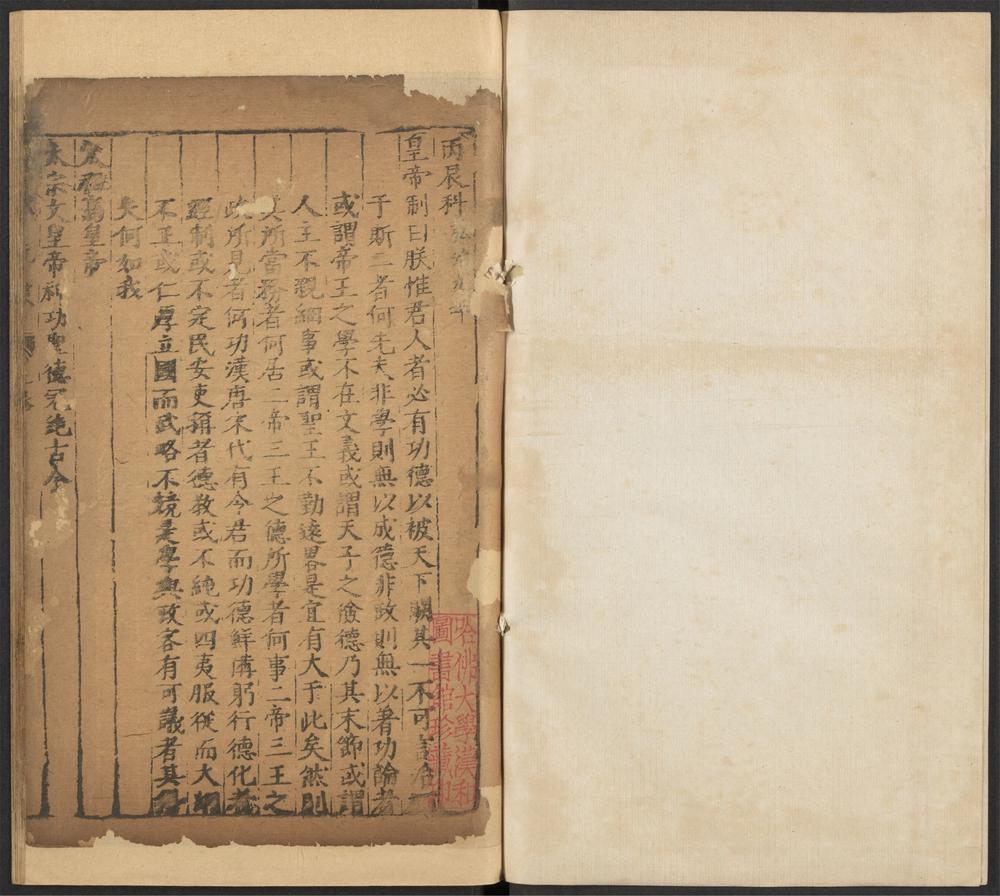 丙辰科弘治九年
皇帝制曰朕惟君人者必有功德以被天下闕其一不可言治
于斯二者何先夫非學則無以成德非政則無以著功論者
或謂帝王之學不在文義或謂天子之儉德乃其末節或謂
人主不親細事或謂聖王不勤遠畧是宜有大于此矣然則
其所當務者何居二帝三王之德所學者何事二帝三王之
政所見者何功漢唐宋代有令君而功德鮮備躬行德化者
經制或不定民安吏稱者德教或不純或四夷服從而大綱
不正或仁厚立國而武略不競是學與政容有可議者其
失何如我
太祖高皇帝
太宗文皇帝神功聖德冠絶古今
哈佛大學漢和
圖書館珍藏印